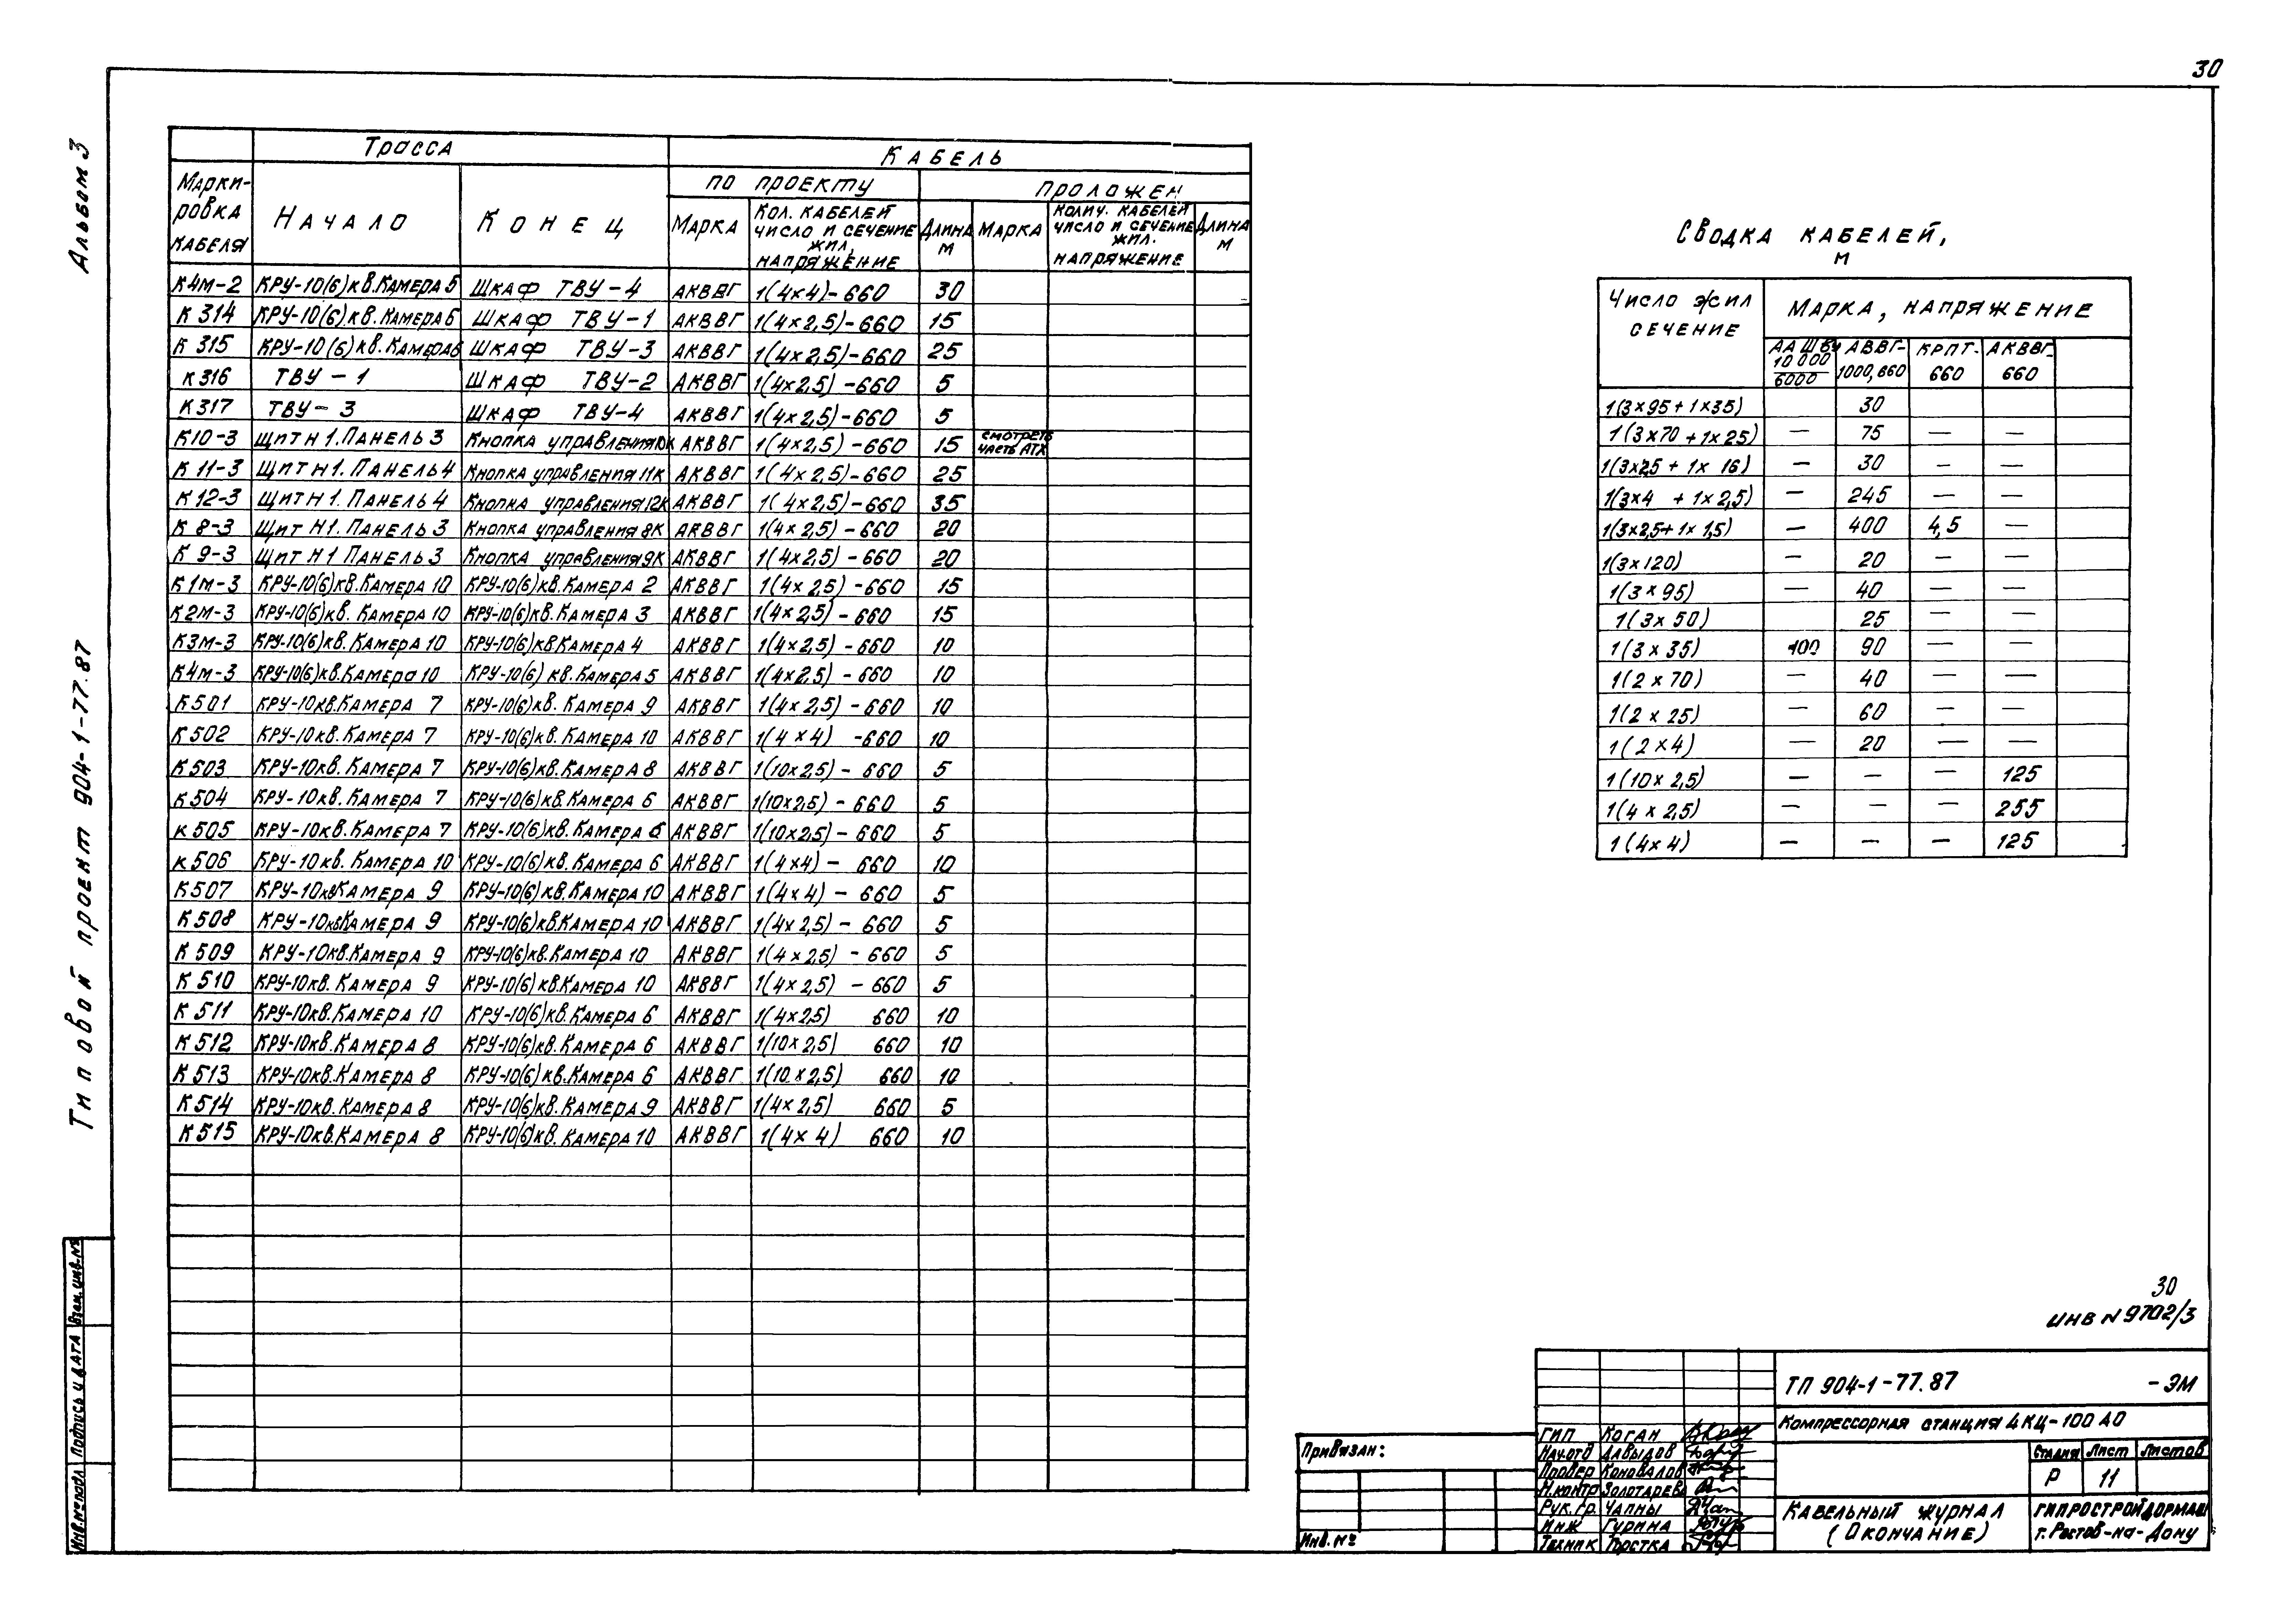 30
Альбом 3
Типовой проект 904-1-77.87
Трасса
Кабель
по проекту
Проложен
Марки-
ровка
кабеля
Начало
Конец
Марка
Кол. кабелей
число и сечение
жил,
напряжение
Длина
м
Марка
Колич. кабелей
число и сечение
жил.
напряжение
Длина
м
К4м-2 КРУ-10(6)кв.Камера 5 Шкаф ТВУ-4 АКВВГ 1(4×4)-660 30
К 314 КРУ-10(6)кв.Камера 6 Шкаф ТВУ-1 АКВВГ 1(4×2,5)-660 15
К 315 КРУ-10(6)кв.Камера 6 Шкаф ТВУ-3 АКВВГ 1(4×2,5)-660 25
К 316 ТВУ-1 Шкаф ТВУ-2 АКВВГ 1(4×2,5)-660 5
К 317 ТВУ-3 Шкаф ТВУ-4 АКВВГ 1(4×2,5)-660 5
К10-3 Щит Н1.Панель 3 Кнопка управления 10К АКВВГ 1(4×2,5)-660 15 смотреть часть АТХ
К 11-3 Щит Н1.Панель 4 Кнопка управления 11К АКВВГ 1(4×2,5)-660 25
К 12-3 Щит Н1.Панель 4 Кнопка управления 12К АКВВГ 1(4×2,5)-660 35
К 8-3 Щит Н1.Панель 3 Кнопка управления 8К АКВВГ 1(4×2,5)-660 20
К 9-3 Щит Н1 Панель 3 Кнопка управления 9К АКВВГ 1(4×2,5)-660 20
К 1м-3 КРУ-10(6)кв.Камера 10 КРУ-10(6)кв.Камера 2 АКВВГ 1(4×2,5)-660 15
К2м-3 КРУ-10(6)кв.Камера 10 КРУ-10(6)кв.Камера 3 АКВВГ 1(4×2,5)-660 15
К3м-3 КРУ-10(6)кв.Камера 10 КРУ-10(6)кв.Камера 4 АКВВГ 1(4×2,5)-660 10
К4м-3 КРУ-10(6)кв.Камера 10 КРУ-10(6)кв.Камера 5 АКВВГ 1(4×2,5)-660 10
К501 КРУ-10кв.Камера 7 КРУ-10(6)кв.Камера 9 АКВВГ 1(4×2,5)-660 10
К502 КРУ-10кв.Камера 7 КРУ-10(6)кв.Камера 10 АКВВГ 1(4×4)-660 10
К503 КРУ-10кв.Камера 7 КРУ-10(6)кв.Камера 8 АКВВГ 1(10×2,5)-660 5
К504 КРУ-10кв.Камера 7 КРУ-10(6)кв.Камера 6 АКВВГ 1(10×2,5)-660 5
К505 КРУ-10кв.Камера 7 КРУ-10(6)кв.Камера 6 АКВВГ 1(10×2,5)-660 5
К506 КРУ-10кв.Камера 10 КРУ-10(6)кв.Камера 6 АКВВГ 1(4×4)-660 10
К507 КРУ-10квКамера 9 КРУ-10(6)кв.Камера 10 АКВВГ 1(4×4)-660 5
К508 КРУ-10квКамера 9 КРУ-10(6)кв.Камера 10 АКВВГ 1(4×2,5)-660 5
К 509 КРУ-10кв.Камера 9 КРУ-10(6)кв.Камера 10 АКВВГ 1(4×2,5)-660 5
К 510 КРУ-10кв.Камера 9 КРУ-10(6)кв.Камера 10 АКВВГ 1(4×2,5)-660 5
К 511 КРУ-10кв.Камера 10 КРУ-10(6)кв.Камера 6 АКВВГ 1(4×2,5) 660 10
К 512 КРУ-10кв.Камера 8 КРУ-10(6)кв.Камера 6 АКВВГ 1(10×2,5) 660 10
К 513 КРУ-10кв.Камера 8 КРУ-10(6)кв.Камера 6 АКВВГ 1(10×2,5) 660 10
К 514 КРУ-10кв.Камера 8 КРУ-10(6)кв.Камера 9 АКВВГ 1(4×2,5) 660 5
К 515 КРУ-10кв.Камера 8 КРУ-10(6)кв.Камера 10 АКВВГ 1(4×4) 660 10
Сводка кабелей,
м
Число жил
сечение
Марка, напряжение
ААШВу 10 000/6000
АВВГ- 1000,660
КРПТ- 660
АКВВГ- 660
1(3×95+1×35) 30
1(3×70+1×25) — 75 — —
1(3×25+1×16) — 30 — —
1(3×4+1×2,5) — 245 — —
1(3×2,5+1×1,5) — 400 4,5 —
1(3×120) — 20 — —
1(3×95) — 40 — —
1(3×50) 25 — —
1(3×35) 100 90 — —
1(2×70) — 40 — —
1(2×25) — 60 — —
1(2×4) — 20 — —
1(10×2,5) — — — 125
1(4×2,5) — — — 255
1(4×4) — — — 125
30
инв N 9702/3
ТП 904-1-77.87 -ЭМ
Компрессорная станция 4КЦ-100 А0
Стадия Лист Листов
Р 11
Кабельный журнал
(Окончание)
Гипростройдормаш
г.Ростов-на-Дону
ГИП Коган
Нач.отд Давыдов
Провер Коновалов
Н.контр Золотарева
Рук.гр. Чапны
Инж Гурина
Техник
Привязан:
Инв. №
Взам.инв.№
Подпись и дата
Инв.№подл